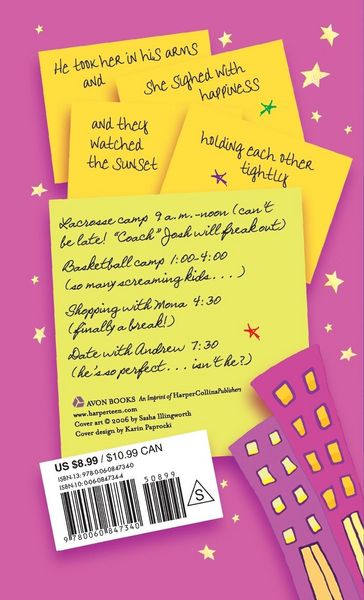 He took her in his arms
and
she sighed with
happiness
and they
watched
the sunset
holding each other
tightly
Lacrosse camp 9 a.m.-noon (can't
be late! "Coach" Josh will freak out)
Basketball camp 1:00-4:00
(so many screaming kids. . . .)
Shopping with Mona 4:30
(finally a break!)
Date with Andrew 7:30
(he's so perfect . . . . isn't he?)
AVON BOOKS An Imprint of HarperCollinsPublishers
www.harperteen.com
Cover art © 2006 by Sasha Illingworth
Cover design by Karin Paprocki
US $8.99 / $10.99 CAN
ISBN-13: 978-0-06-084734-0
ISBN-10: 0-06-084734-4
50899
S
9 780060 847340